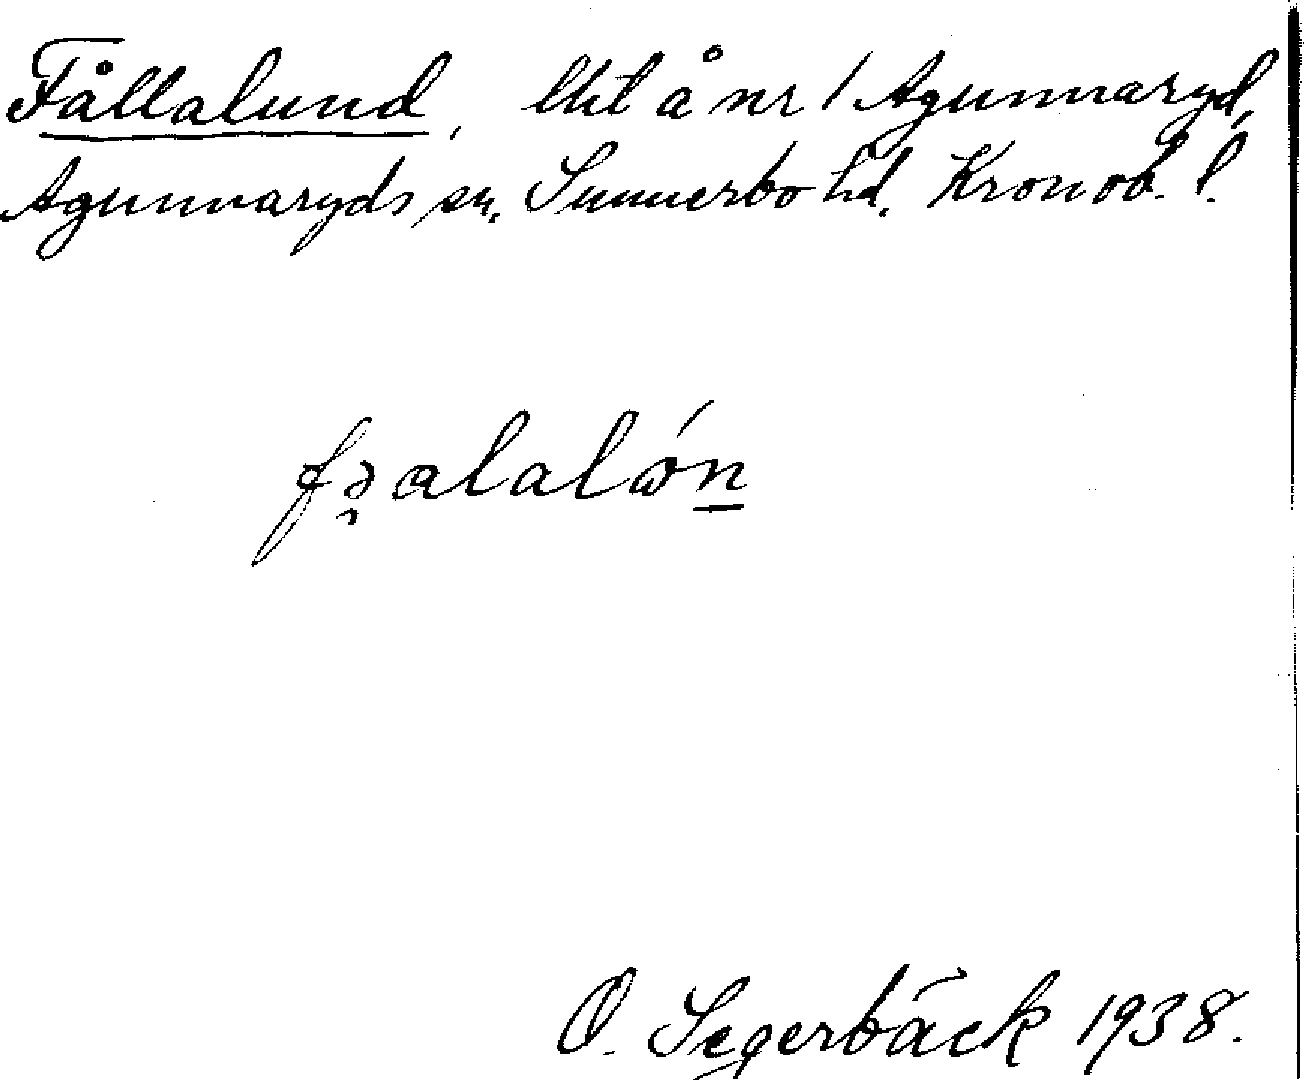 Fållalund, lht å nr 1 Agunnaryd,
Agunnaryds sn. Sunnerbo hd. Kronob. l.
O. Segerbäck 1938.